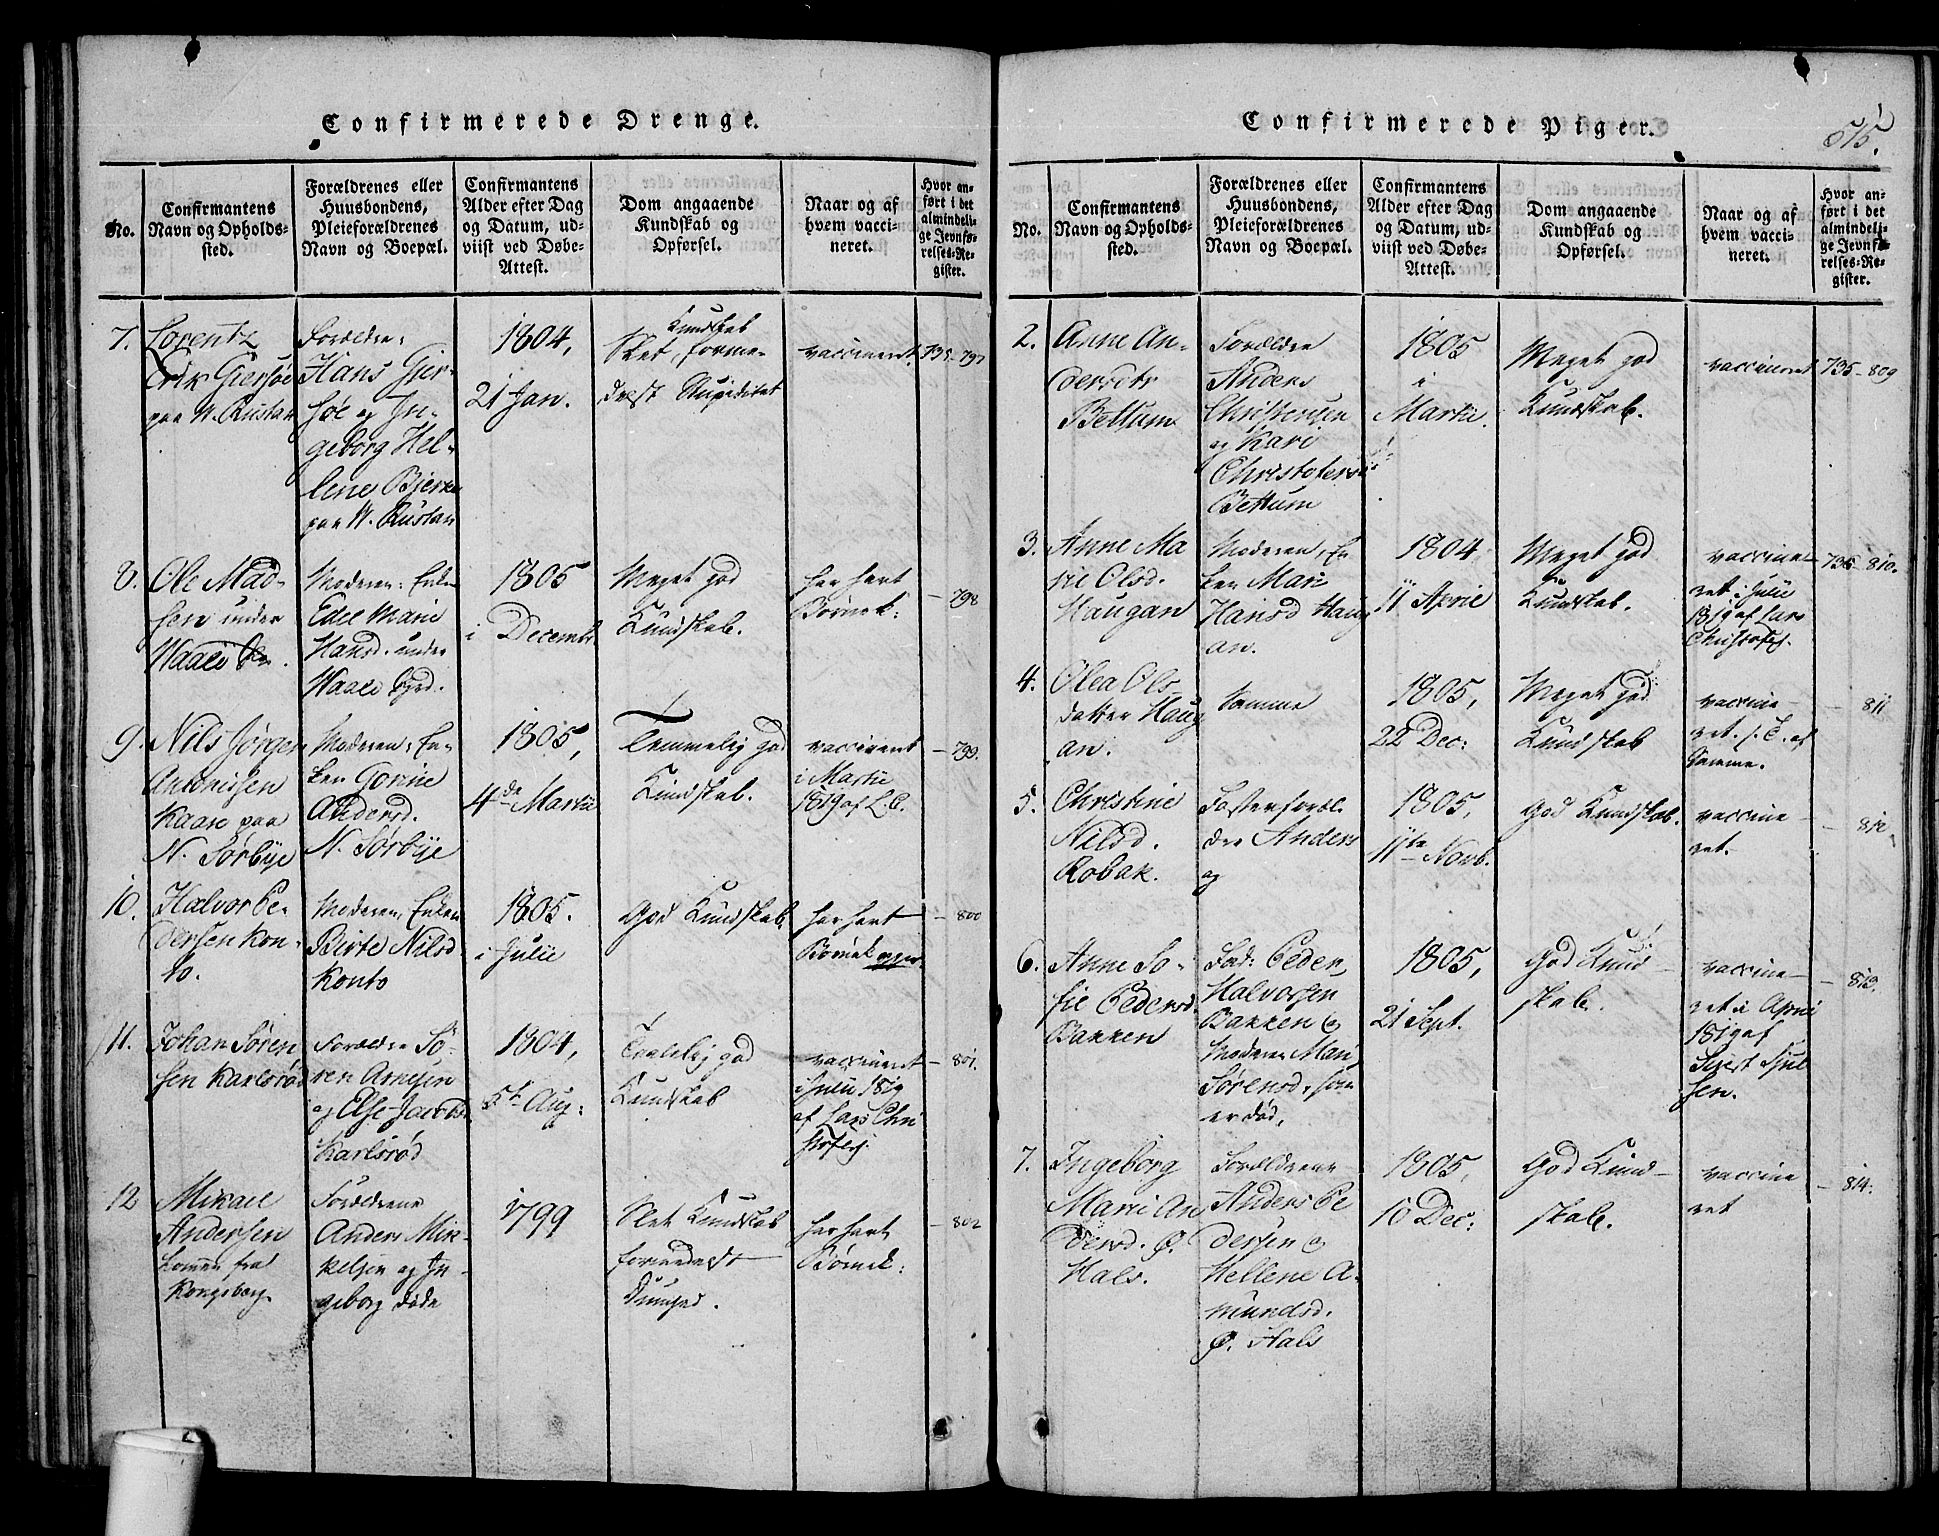 Confirmerede Drenge.
No.
Confirmantens
Navn og Opholds-
sted.
Forældrenes eller
Huusbondens,
Pleieforældrenes
Navn og Boepæl.
Confirmantens
Alder efter Dag
og Datum, ud-
viist ved Døbe-
Attest.
Dom angaaende
Kundskab og
Opførsel.
Naar og af
hvem vacci-
neret.
Hvor an-
ført i det
almindeli-
ge Jevnfø-
relses-Re-
gister.
7.
Lorentz
Erik Giersøe
paa N. Rustan
Forældre:
Hans Gjer-
søe og In-
geborg Hel-
lene Bjerke
paa N. Rustan
1804,
21 Jan.
Kundskab
Slet, forme-
delst Stupiditet
vaccineret
735-797
8.
Ole Mad-
sen under
Waale
Moderen: Enken
Edel Marie
Hansd. under
Waale
1805
i Decembr
Meget god
Kundskab.
har havt
Børnek:
- 798
9.
Nils Jørgen
Antonissen
Kaase paa
N. Sørbye
Moderen, En-
ken Gorine
Andersd.
N. Sørbye
1805,
4de Martii
Temmelig god
Kundskab.
vaccineret
i Martii
1819 af L. C.
- 799.
10.
Halvor Pe-
dersen Kon-
to.
Moderen, Enken
Birte Nilsd
Konto
1805.
i Julii
God Kundskab
har havt
Børnek
- 800
11.
Johan Søren
sen Karlsrød
Forældre Sø-
ren Arnesen
og Else Jacobs
Karlsrød
1804,
5t Aug:
Taalelig god
Kundskab
vaccineret
i Julii 1819
af Lars Chri
stofers.
- 801.
12
Mikael
Andersen
kommen fra
Kongsberg.
Forældrene
Anders Mik-
kelsen og In-
geborg døde
1799
Slet Kundskab
formedelst
Dumhed.
har havt
Børnek:
- 802
Confirmerede Piger.
575.
No.
Confirmantens
Navn og Opholds-
sted.
Forældrenes eller
Huusbondens,
Pleieforældrenes
Navn og Boepæl.
Confirmantens
Alder efter Dag
og Datum, ud-
viist ved Døbe-
Attest.
Dom angaaende
Kundskab og
Opførsel.
Naar og af
hvem vacci-
neret.
Hvor an-
ført i det
almindeli-
ge Jevnfø-
relses-Re-
gister.
2.
Anne An-
dersdtr
Bettum
Forældre
Anders
Christensen
og Kari
Christofersd
Bettum
1805
i
Martii.
Meget god
Kundskab.
vaccineret
735-809
3.
Anne Ma
rie Olsd.
Haugan
Moderen, En
ken Mari
Hansd Haug
an.
1804
11 April
Meget god
Kundskab.
vaccine-
ret i Julii
1819 af Lars
Christofers.
735-810.
4.
Olea Ols
datter Haug
an.
Samme
1805,
22 Dec:
Meget god
Kundskab
vaccine-
ret. s. T. af
Samme.
- 811
5.
Christine
Nilsd.
Robak.
Fosterforæl-
dre Anders
og
1805,
11te Novb.
God Kundskab.
vaccine-
ret.
- 812
6.
Anne So-
fie Pedersd.
Bakken
Fad: Peder
Halvorsen
Bakken &
Moderen Mari
Sørensd. som
er død,
1805,
21 Sept.
God Kund-
skab.
vaccine-
ret i April
1819 af
Sivert Hjul
sen.
- 813.
7.
Ingeborg
Marie An
dersd. Ø.
Hals.
Forældrene
Anders Pe
dersen &
Hellene A-
mundsd.
Ø. Hals
1805,
10 Dec:
God Kund-
skab.
vaccine
ret
- 814.